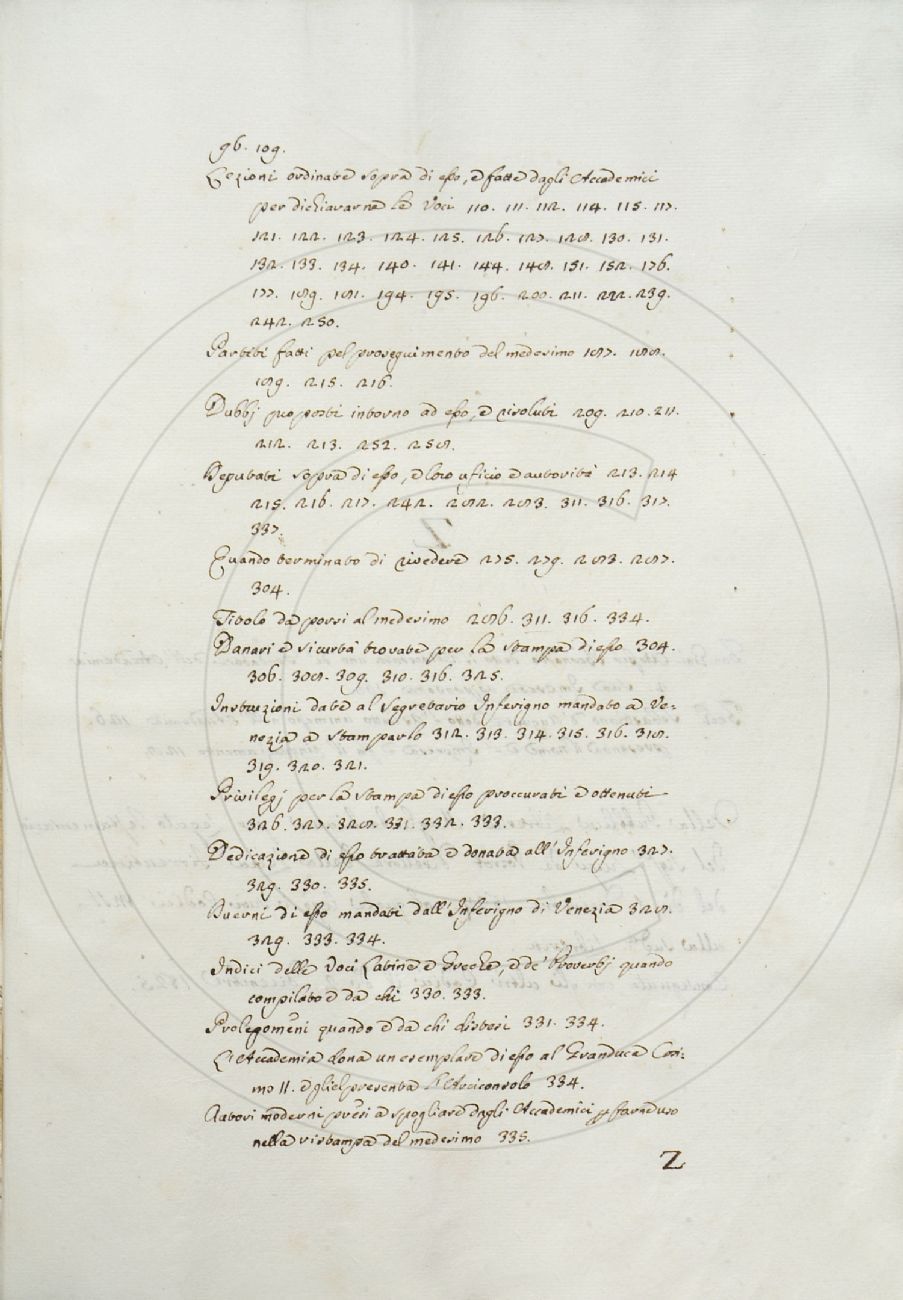 96. 109.
Lezioni ordinate sopra di esso, e fatte dagli Accademici
per dichiararne le Voci 110. 111. 112. 114. 115. 117.
121. 122. 123. 124. 125. 126. 127. 128. 130. 131.
132. 133. 134. 140. 141. 144. 148. 151. 152. 176.
177. 189. 181. 194. 195. 196. 208. 211. 222. 239.
242. 250.
Partiti fatti pel proseguimento del medesimo 187. 188.
189. 215. 216.
Dubbj proposti intorno ad esso, e risoluti 209. 210. 211.
212. 213. 252. 258.
Deputati sopra di esso, e loro uficio e autorità 213. 214
215. 216. 217. 242. 282. 283. 311. 316. 317.
337.
Quando terminato di rivedere 275. 279. 283. 287.
304.
Titolo da porsi al medesimo 286. 311. 316. 334.
Danari e sicurtà trovate per la stampa di esso 304.
306. 308. 309. 310. 316. 325.
Instruzioni date al Segretario Inferigno mandato a Ve-
nezia a stamparlo 312. 313. 314. 315. 316. 318.
319. 320. 321.
Privilegj per la stampa di esso proccurati e ottenuti
326. 327. 328. 331. 332. 333.
Dedicazione di esso trattata e donata all'Inferigno 327.
329. 330. 335.
Querni di esso mandati dall'Inferigno di Venezia 328.
329. 333. 334.
Indici delle Voci Latine e Greche, e de' Proverbj quando
compilato e da chi 330. 333.
Prolegomeni quando e da chi distesi 331. 334.
L'Accademia dona un esemplare di esso al Granduca Cosi-
mo II. e gliel presenta l'Arciconsolo 334.
Autori moderni presi a spogliare dagli Accademici p farne uso
nella ristampa del medesimo 335.
Z